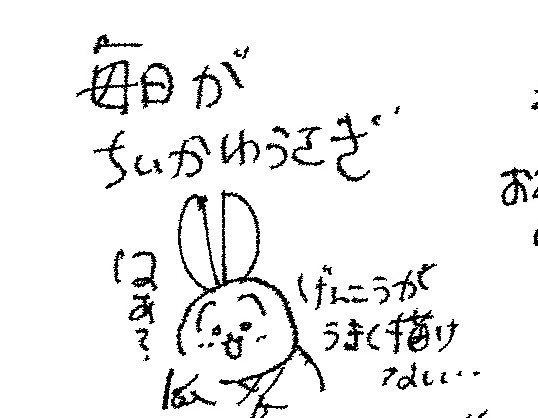 毎日が
ちいかわうさぎ
はあ?
げんこうが
うまく描け
ない…